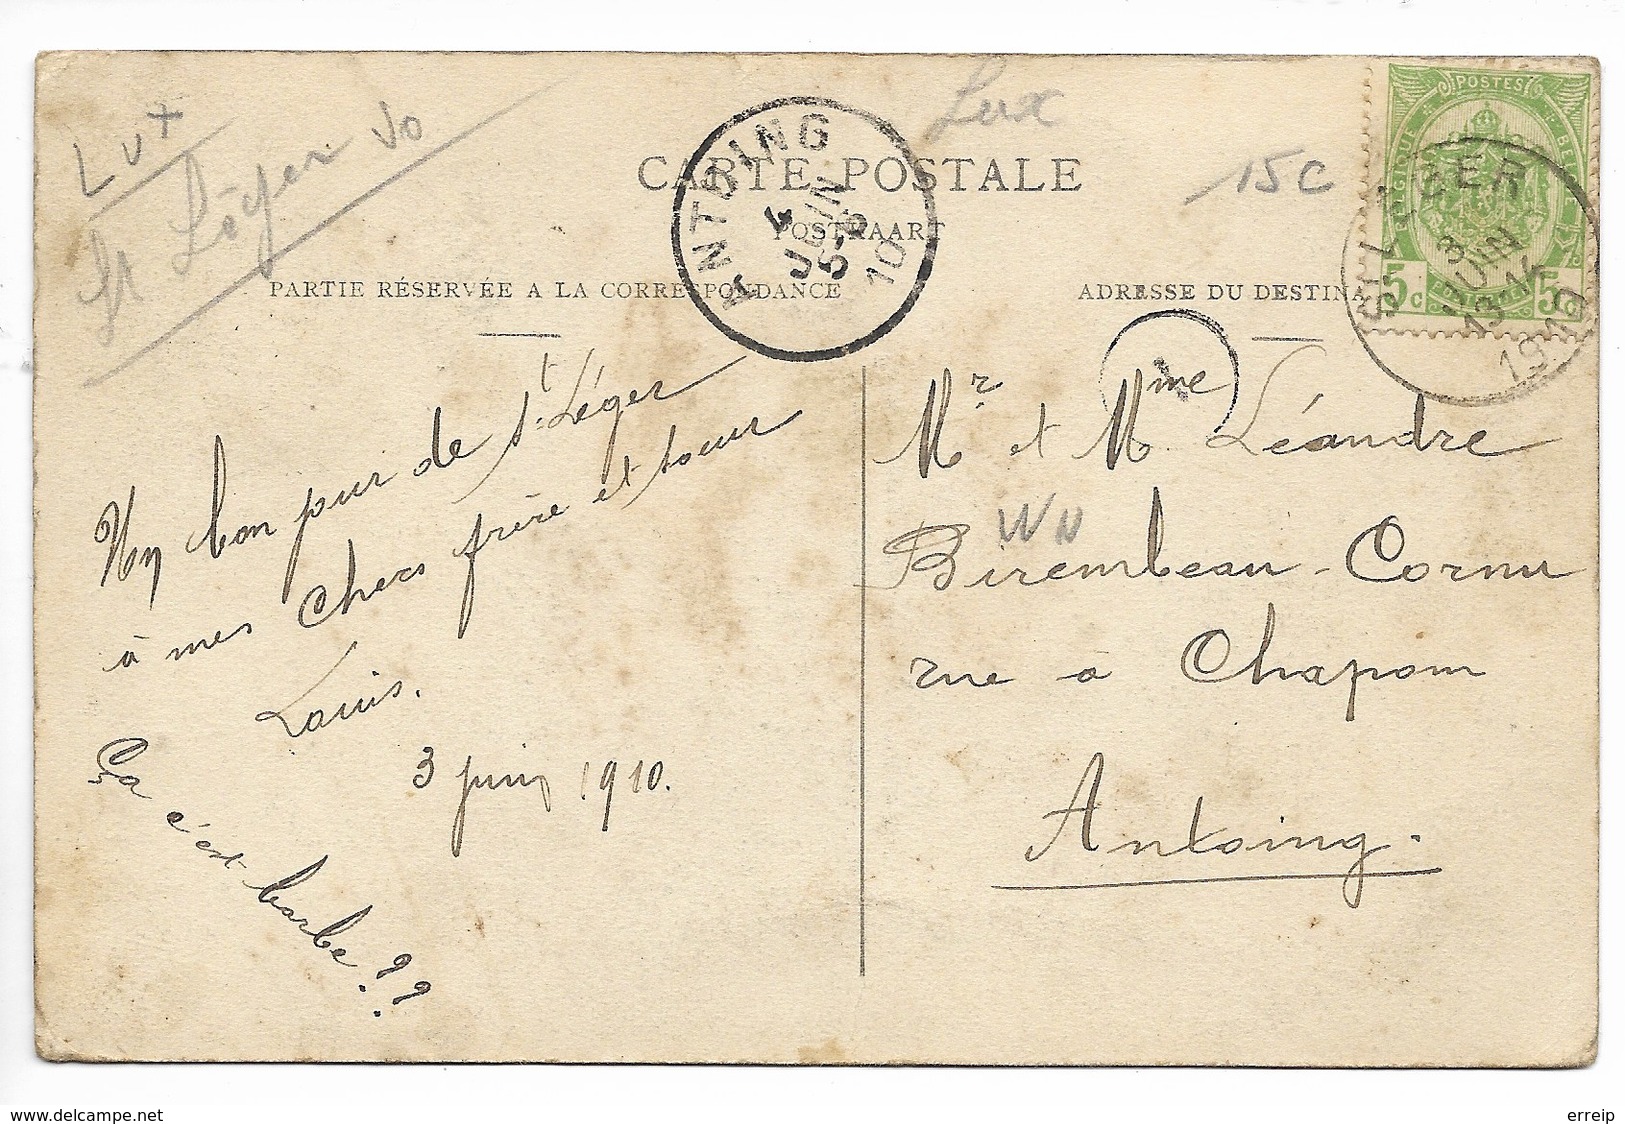 Lux
St Léger Vo
Lux
15c
CARTE POSTALE
POSTKAART
PARTIE RÉSERVÉE A LA CORRESPONDANCE
ADRESSE DU DESTINA
ANTOING
4
JUIN
5-6
10
POSTES
BELGIQUE
5c
5c
ST LÉGER
3
JUIN
13-14
1910
1
Un bon jour de St Léger
à mes chers frère et sœur
Louis.
3 juin 1910.
Ça c'est barbe??
Mr et Mme Léandre
WN
Birembeau-Cornu
rue à Chapom
Antoing.
www.delcampe.net
erreip